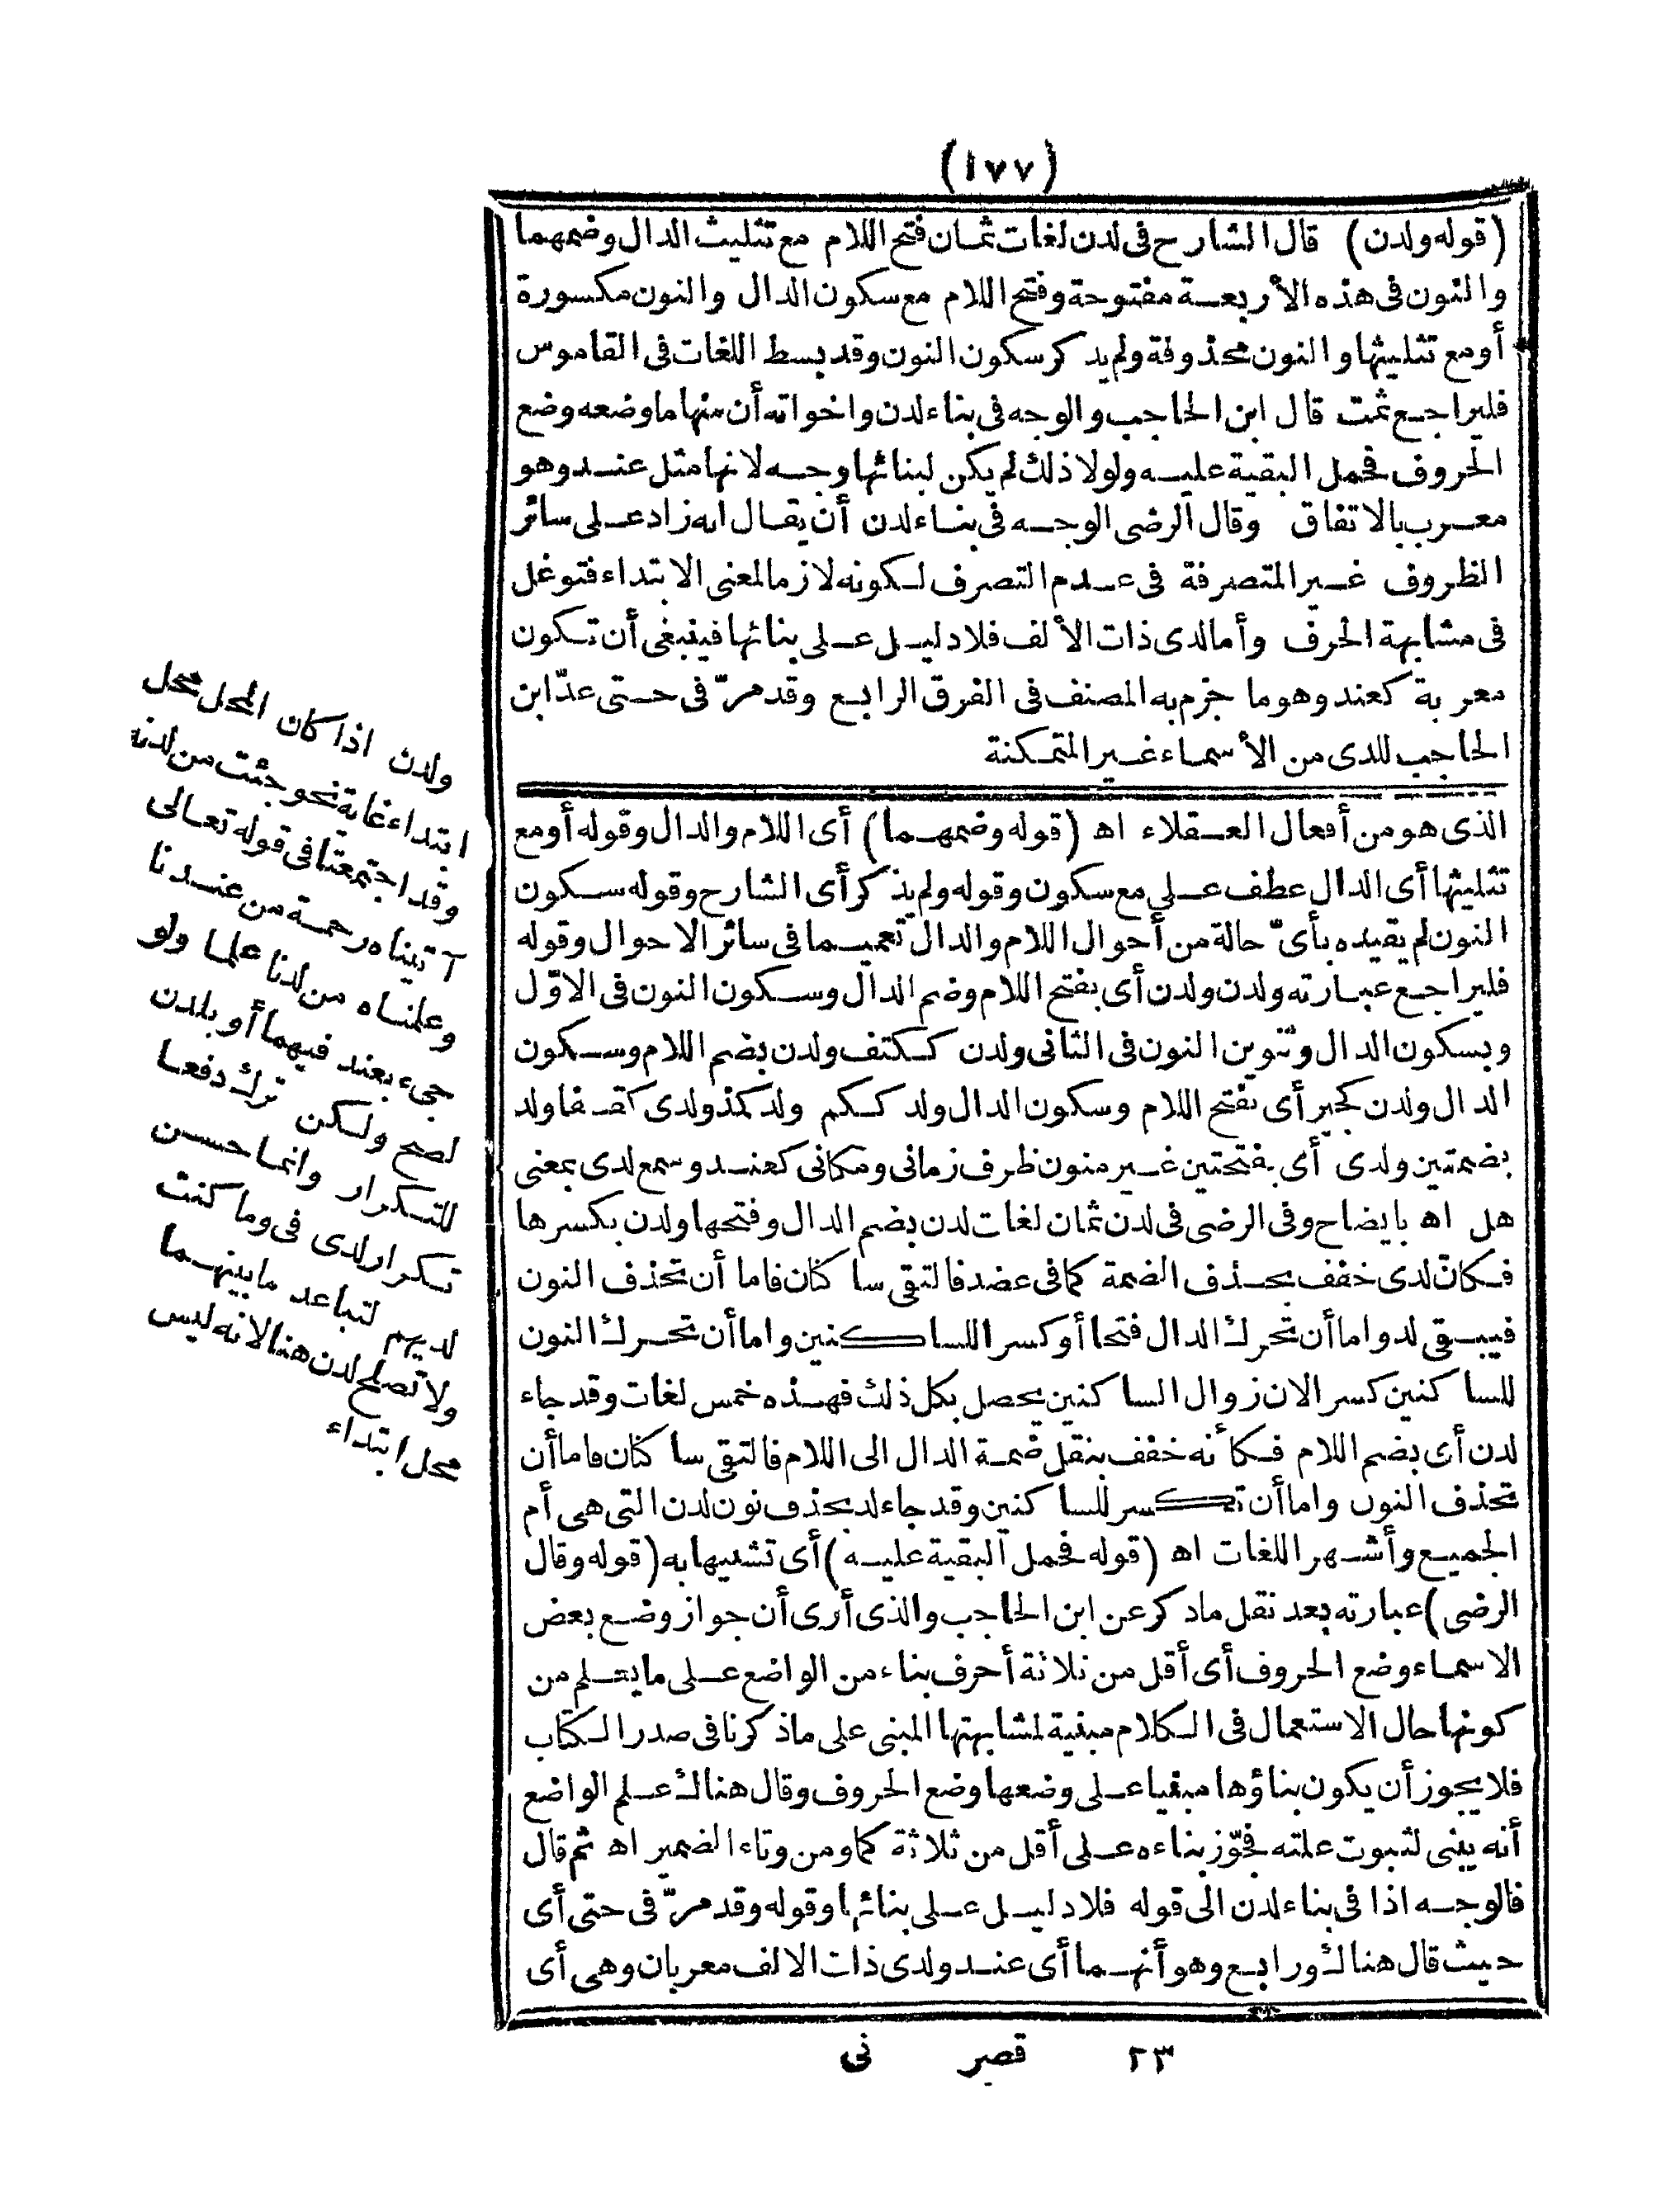 (١٧٧)
(قوله ولدن) قال الشارح فى لدن لغات ثمان فتح اللام مع تثليث الدال وضمهما
والنون فى هذه الأربعة مفتوحة وفتح اللام مع سكون الدال والنون مكسورة
أومع تثليثها والنون محذوفة ولم يذكر سكون النون وقد بسط اللغات فى القاموس
فليراجع ثمت قال ابن الحاجب والوجه فى بناء لدن واخواته أن منها ما وضعه وضع
الحروف فحمل البقية عليه ولولا ذلك لم يكن لبنائها وجه لانها مثل عند وهو
معرب بالاتفاق وقال الرضى الوجه فى بناء لدن أن يقال انه زاد على سائر
الظروف غير المتصرفة فى عدم التصرف لكونه لازما لمعنى الابتداء فتوغل
فى مشابهة الحرف وأما لدى ذات الألف فلا دليل على بنائها فينبغى أن تكون
معربة كعند وهو ما جزم به المصنف فى الفرق الرابع وقد مرّ فى حتى عدّ ابن
الحاجب للدى من الأسماء غير المتمكنة
الذى هو من أفعال العقلاء اه (قوله وضمهما) أى اللام والدال وقوله أو مع
تثليثها أى الدال عطف على مع سكون وقوله ولم يذكر أى الشارح وقوله سكون
النون لم يقيده بأىّ حالة من أحوال اللام والدال تعميما فى سائر الاحوال وقوله
فليراجع عبارته ولدن ولدن أى بفتح اللام وضم الدال وسكون النون فى الاوّل
وبسكون الدال وتنوين النون فى الثانى ولدن ككتف ولدن بضم اللام وسكون
الدال ولدن كجير أى بفتح اللام وسكون الدال ولد ككم ولد كمذ ولدى كقفا ولد
بضمتين ولدى أى بفتحتين غير منون ظرف زمانى ومكانى كعند وسمع لدى بمعنى
هل اه بايضاح وفى الرضى فى لدن ثمان لغات لدن بضم الدال وفتحها ولدن بكسرها
فكانّ لدى خفف بحذف الضمة كما فى عضد فالتقى ساكنان فاما أن تحذف النون
فيبقى لد واما أن تحرك الدال فتحا أو كسرا للساكنين واما أن تحرك النون
للساكنين كسر الان زوال الساكنين يحصل بكل ذلك فهذه خمس لغات وقد جاء
لدن أى بضم اللام فكأنه خفف بنقل ضمة الدال الى اللام فالتقى ساكنان فاما أن
تحذف النون واما أن تكسر للساكنين وقد جاء لد بحذف نون لدن التى هى أم
الجميع وأشهر اللغات اه (قوله فحمل البقية عليه) أى تشبيها به (قوله وقال
الرضى) عبارته بعد نقل ماذكر عن ابن الحاجب والذى أرى أن جواز وضع بعض
الاسماء وضع الحروف أى أقل من ثلاثة أحرف بناء من الواضع على ما يعلم من
كونها حال الاستعمال فى الكلام مبنية لمشابهتها المبنى على ماذكرنا فى صدر الكتاب
فلا يجوز أن يكون بناؤها مبنيا على وضعها وضع الحروف وقال هناك علم الواضع
أنه يبنى لثبوت علته فجوّز بناءه على أقل من ثلاثة كما ومن وتاء الضمير اه ثم قال
فالوجه اذا فى بناء لدن الى قوله فلا دليل على بنائها وقوله وقد مرّ فى حتى أى
حيث قال هناك ورابع وهو أنهما أى عند ولدى ذات الالف معربان وهى أى
ولدن اذا كان المحل محل
ابتداء غاية نحو جئت من لدنه
وقد اجتمعتا فى قوله تعالى
آتيناه رحمة من عندنا
وعلمناه من لدنا علما ولو
جىء بعند فيهما أو بلدن
لصح ولكن ترك دفعا
للتكرار وانما حسن
تكرار لدى فى وما كنت
لديهم لتباعد ما بينهما
ولا تصلح لدن هنا لانه ليس
محل ابتداء
٢٣ قصر نى